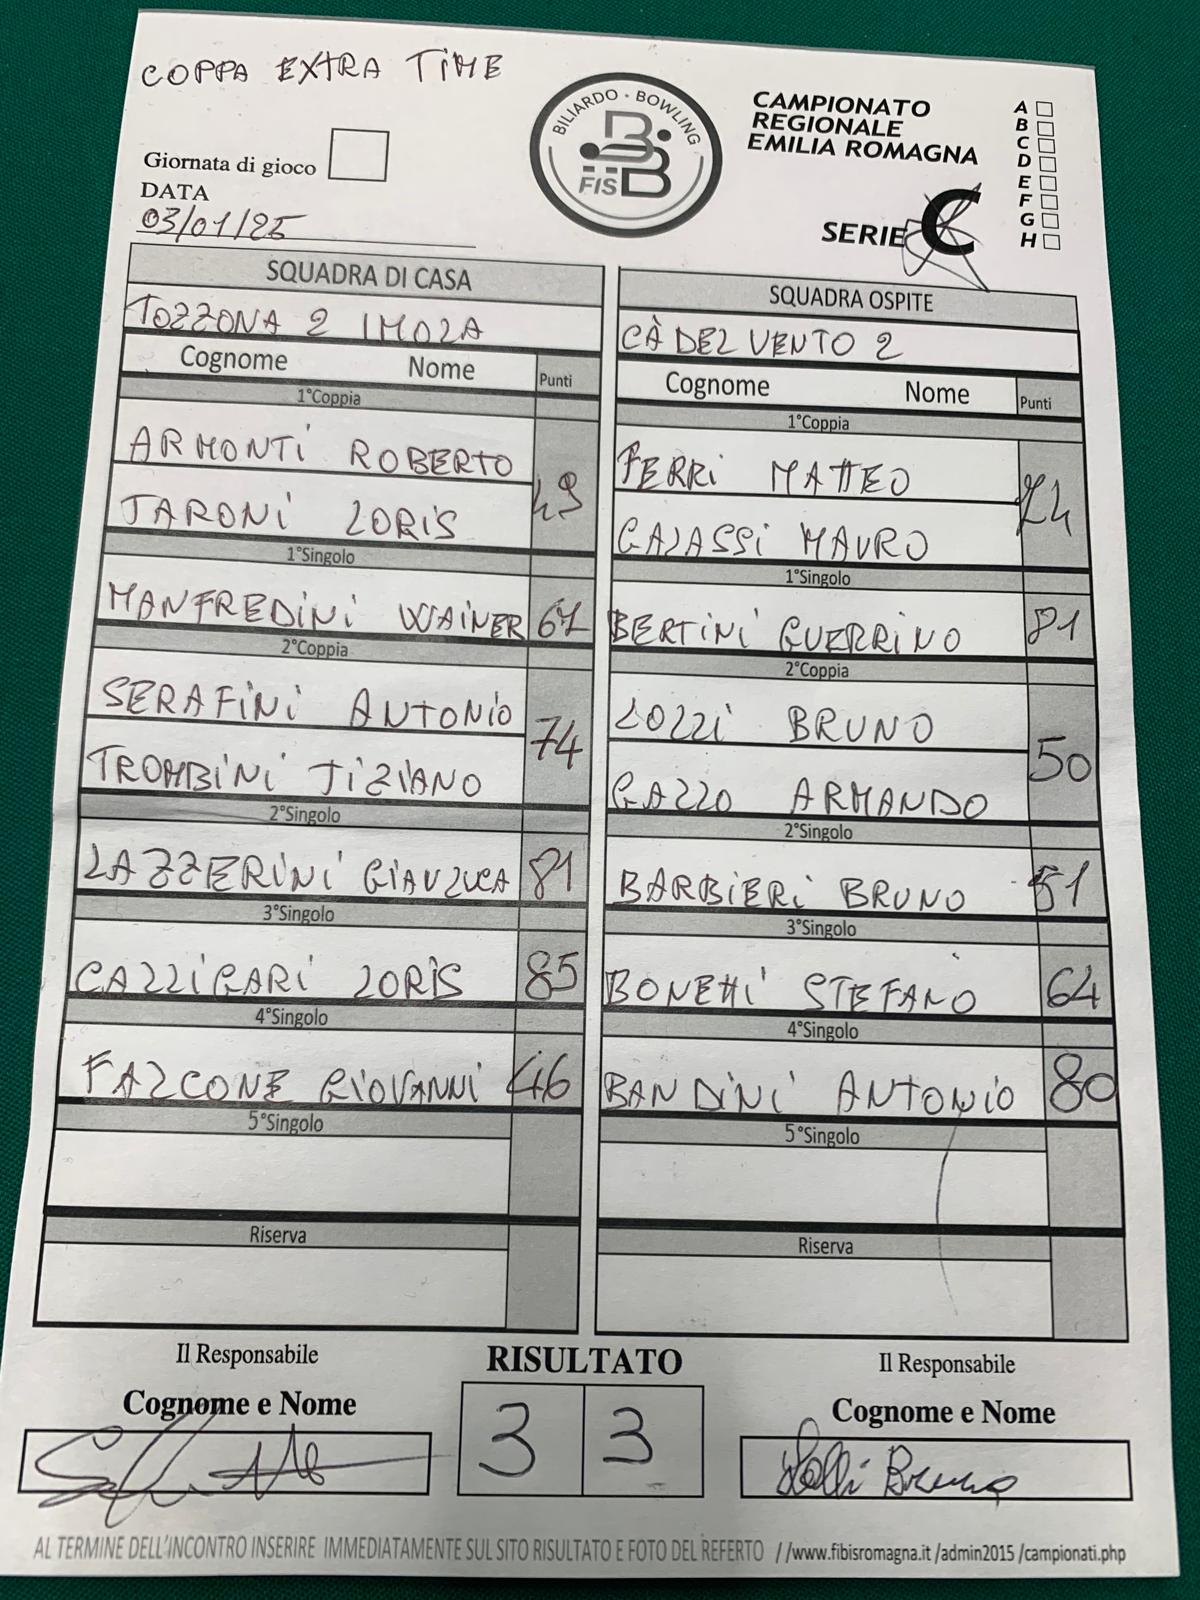 COPPA EXTRA TIME
BILIARDO · BOWLING
FIS
CAMPIONATO
REGIONALE
EMILIA ROMAGNA
A
B
C
D
E
F
G
H
Giornata di gioco
DATA
03/01/25
SERIE C
SQUADRA DI CASA
TOZZONA 2 IMOLA
Cognome Nome Punti
1°Coppia
ARMONTI ROBERTO
TARONI LORIS
49
1°Singolo
MANFREDINI WAINER 67
2°Coppia
SERAFINI ANTONIO
TROMBINI TIZIANO
74
2°Singolo
LAZZERINI GIANLUCA 81
3°Singolo
CALLIGARI LORIS 85
4°Singolo
FALCONE GIOVANNI 46
5°Singolo
Riserva
SQUADRA OSPITE
CÀ DEL VENTO 2
Cognome Nome Punti
1°Coppia
FERRI MATTEO
GALASSI MAURO
74
1°Singolo
BERTINI GUERRINO 81
2°Coppia
LOLLI BRUNO
GALLO ARMANDO
50
2°Singolo
BARBIERI BRUNO 51
3°Singolo
BONETTI STEFANO 64
4°Singolo
BANDINI ANTONIO 80
5°Singolo
Riserva
Il Responsabile
Cognome e Nome
RISULTATO
3 3
Il Responsabile
Cognome e Nome
Lolli Bruno
AL TERMINE DELL'INCONTRO INSERIRE IMMEDIATAMENTE SUL SITO RISULTATO E FOTO DEL REFERTO //www.fibisromagna.it /admin2015 /campionati.php